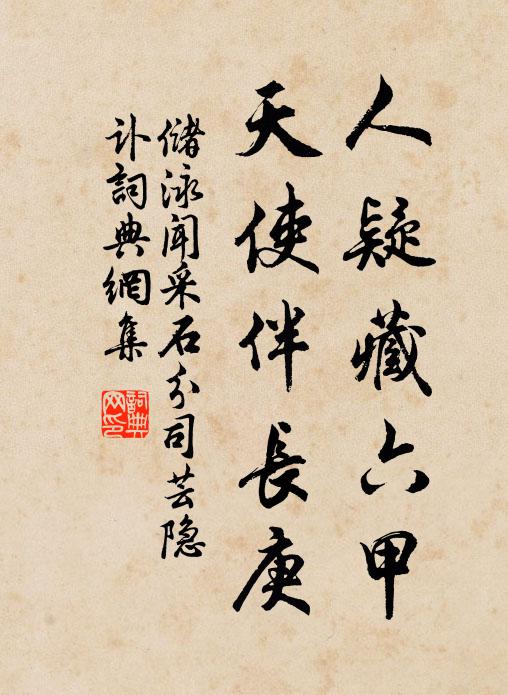 人疑藏六甲
天使伴長庚
儲泳聞采石分司芸隐
訃詞典網集
詞典
网印